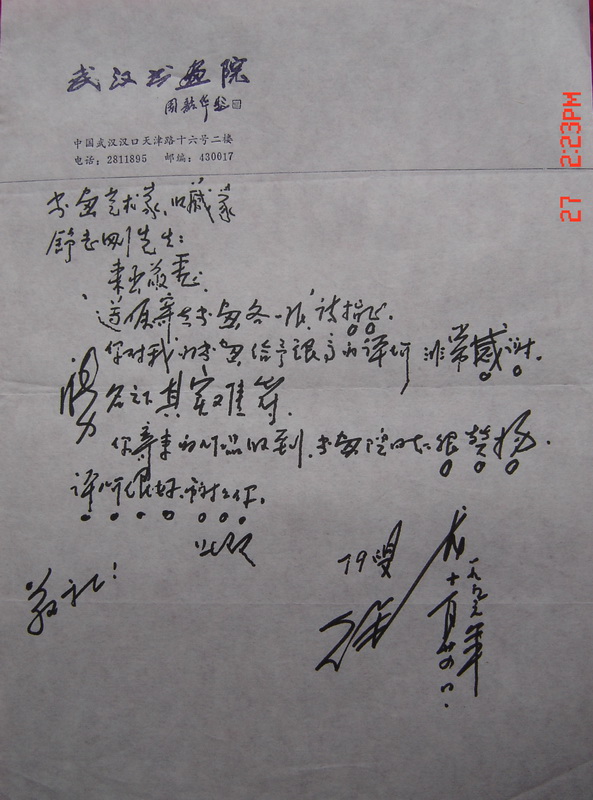 武汉书画院
周韶华题
中国武汉汉口天津路十六号二楼
电话：2811895 邮编：430017
27 2:23PM
书画艺术家、收藏家
舒志刚先生：
来函敬悉.
送原寄去书画各一张,请指正.
你对我的书画给予很高的评价 非常感谢.
名之下其实难符.
你寄来的作品收到.书画院同志很赞扬.
评价很好.谢谢你.
此致
敬礼！
79叟
十月廿四日.